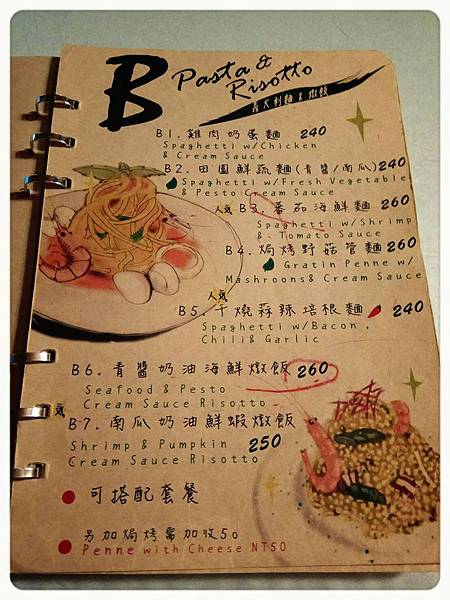 B Pasta &
Risotto
義大利麵 & 燉飯
B1. 雞肉奶蛋麵 240
Spaghetti w/Chicken
& Cream Sauce
B2. 田園鮮蔬麵(青醬/南瓜)240
Spaghetti w/Fresh Vegetable
& Pesto Cream Sauce
人氣 B3. 蕃茄海鮮麵 260
Spaghetti w/Shrimp
& Tomato Sauce
B4. 焗烤野菇管麵 260
Gratin Penne w/
Mashroons & Cream Sauce
人氣
B5. 干燒蒜辣培根麵 240
Spaghetti w/Bacon,
Chili & Garlic
B6. 青醬奶油海鮮燉飯 260
Seafood & Pesto
Cream Sauce Risotto
氣
B7. 南瓜奶油鮮蝦燉飯
Shrimp & Pumpkin 250
Cream Sauce Risotto
可搭配套餐
另加焗烤需加收50
Penne with Cheese NT50